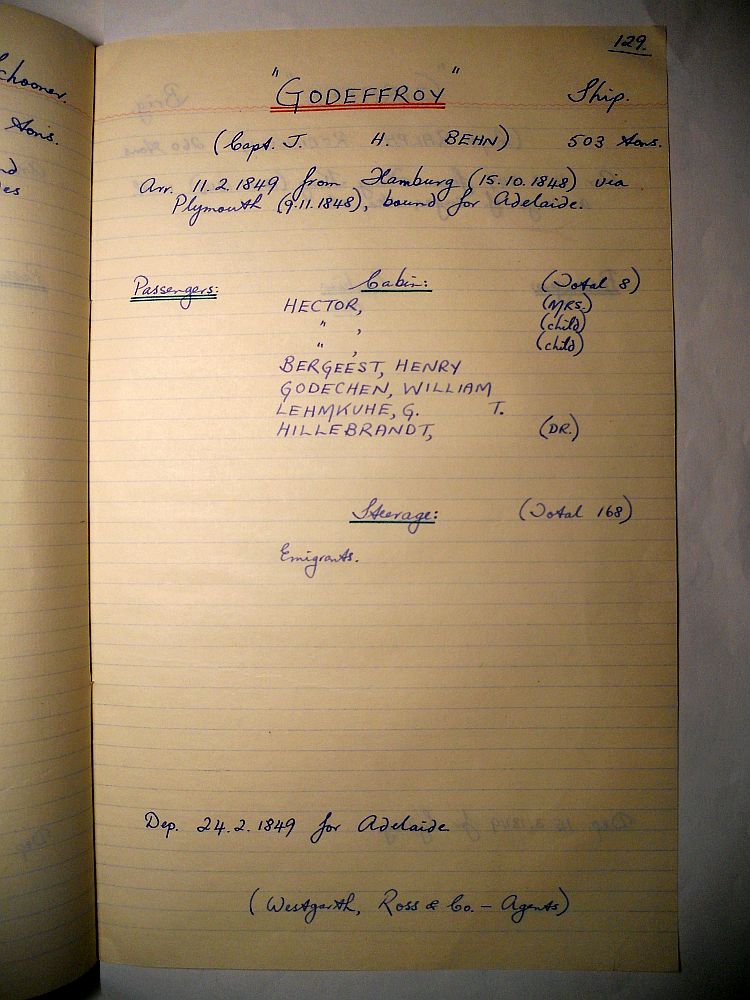 chooner.
tons.
nd
es
129.
"GODEFFROY" Ship.
(Capt. J. H. BEHN) 503 tons.
Arr. 11.2.1849 from Hamburg (15.10.1848) via
Plymouth (9.11.1848), bound for Adelaide.
Passengers: Cabin: (Total 8)
HECTOR, (MRS.)
" , (child)
" , (child)
BERGEEST, HENRY
GODECHEN, WILLIAM
LEHMKUHE, G. T.
HILLEBRANDT, (DR.)
Steerage: (Total 168)
Emigrants.
Dep. 24.2.1849 for Adelaide
(Westgarth, Ross & Co. - Agents)